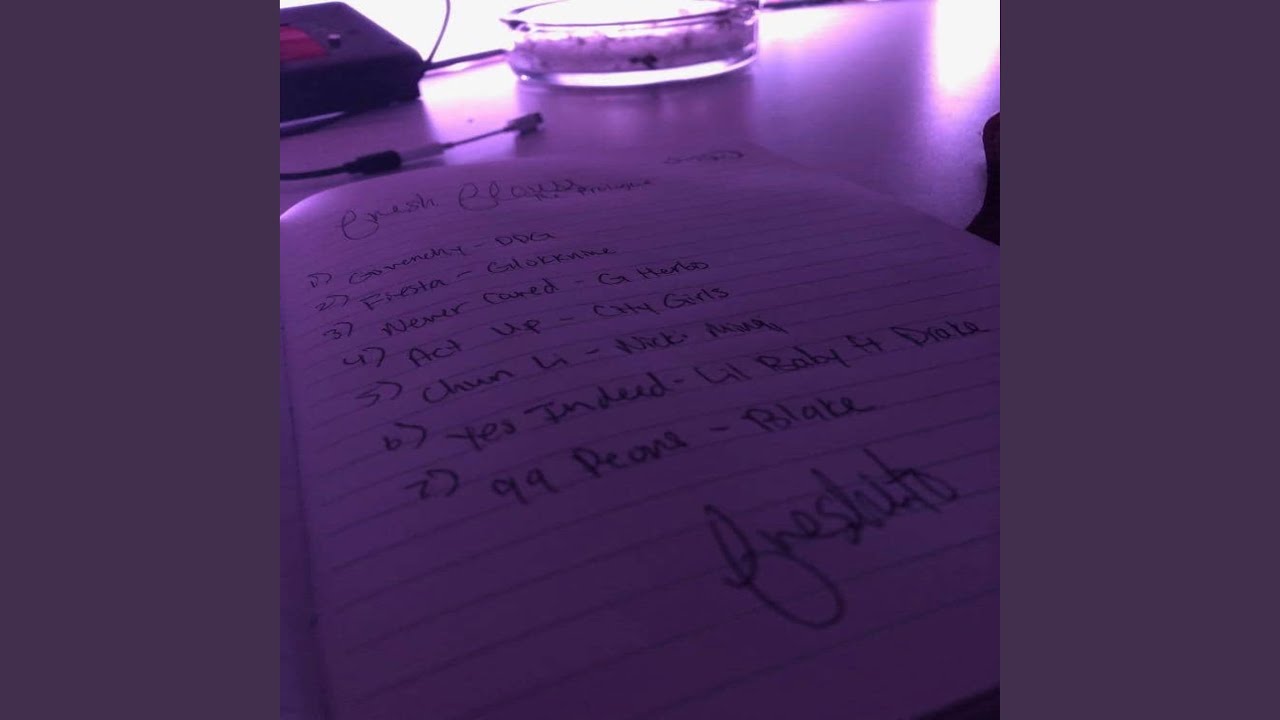 Fresh Flows
The Prologue
1) Govenchy - DDG
2) Fiesta - Glokknine
3) Never Cared - G Herbo
4) Act Up - City Girls
5) Chun Li - Nicki Minaj
6) Yes Indeed - Lil Baby ft Drake
7) 99 - Blake
Freshito